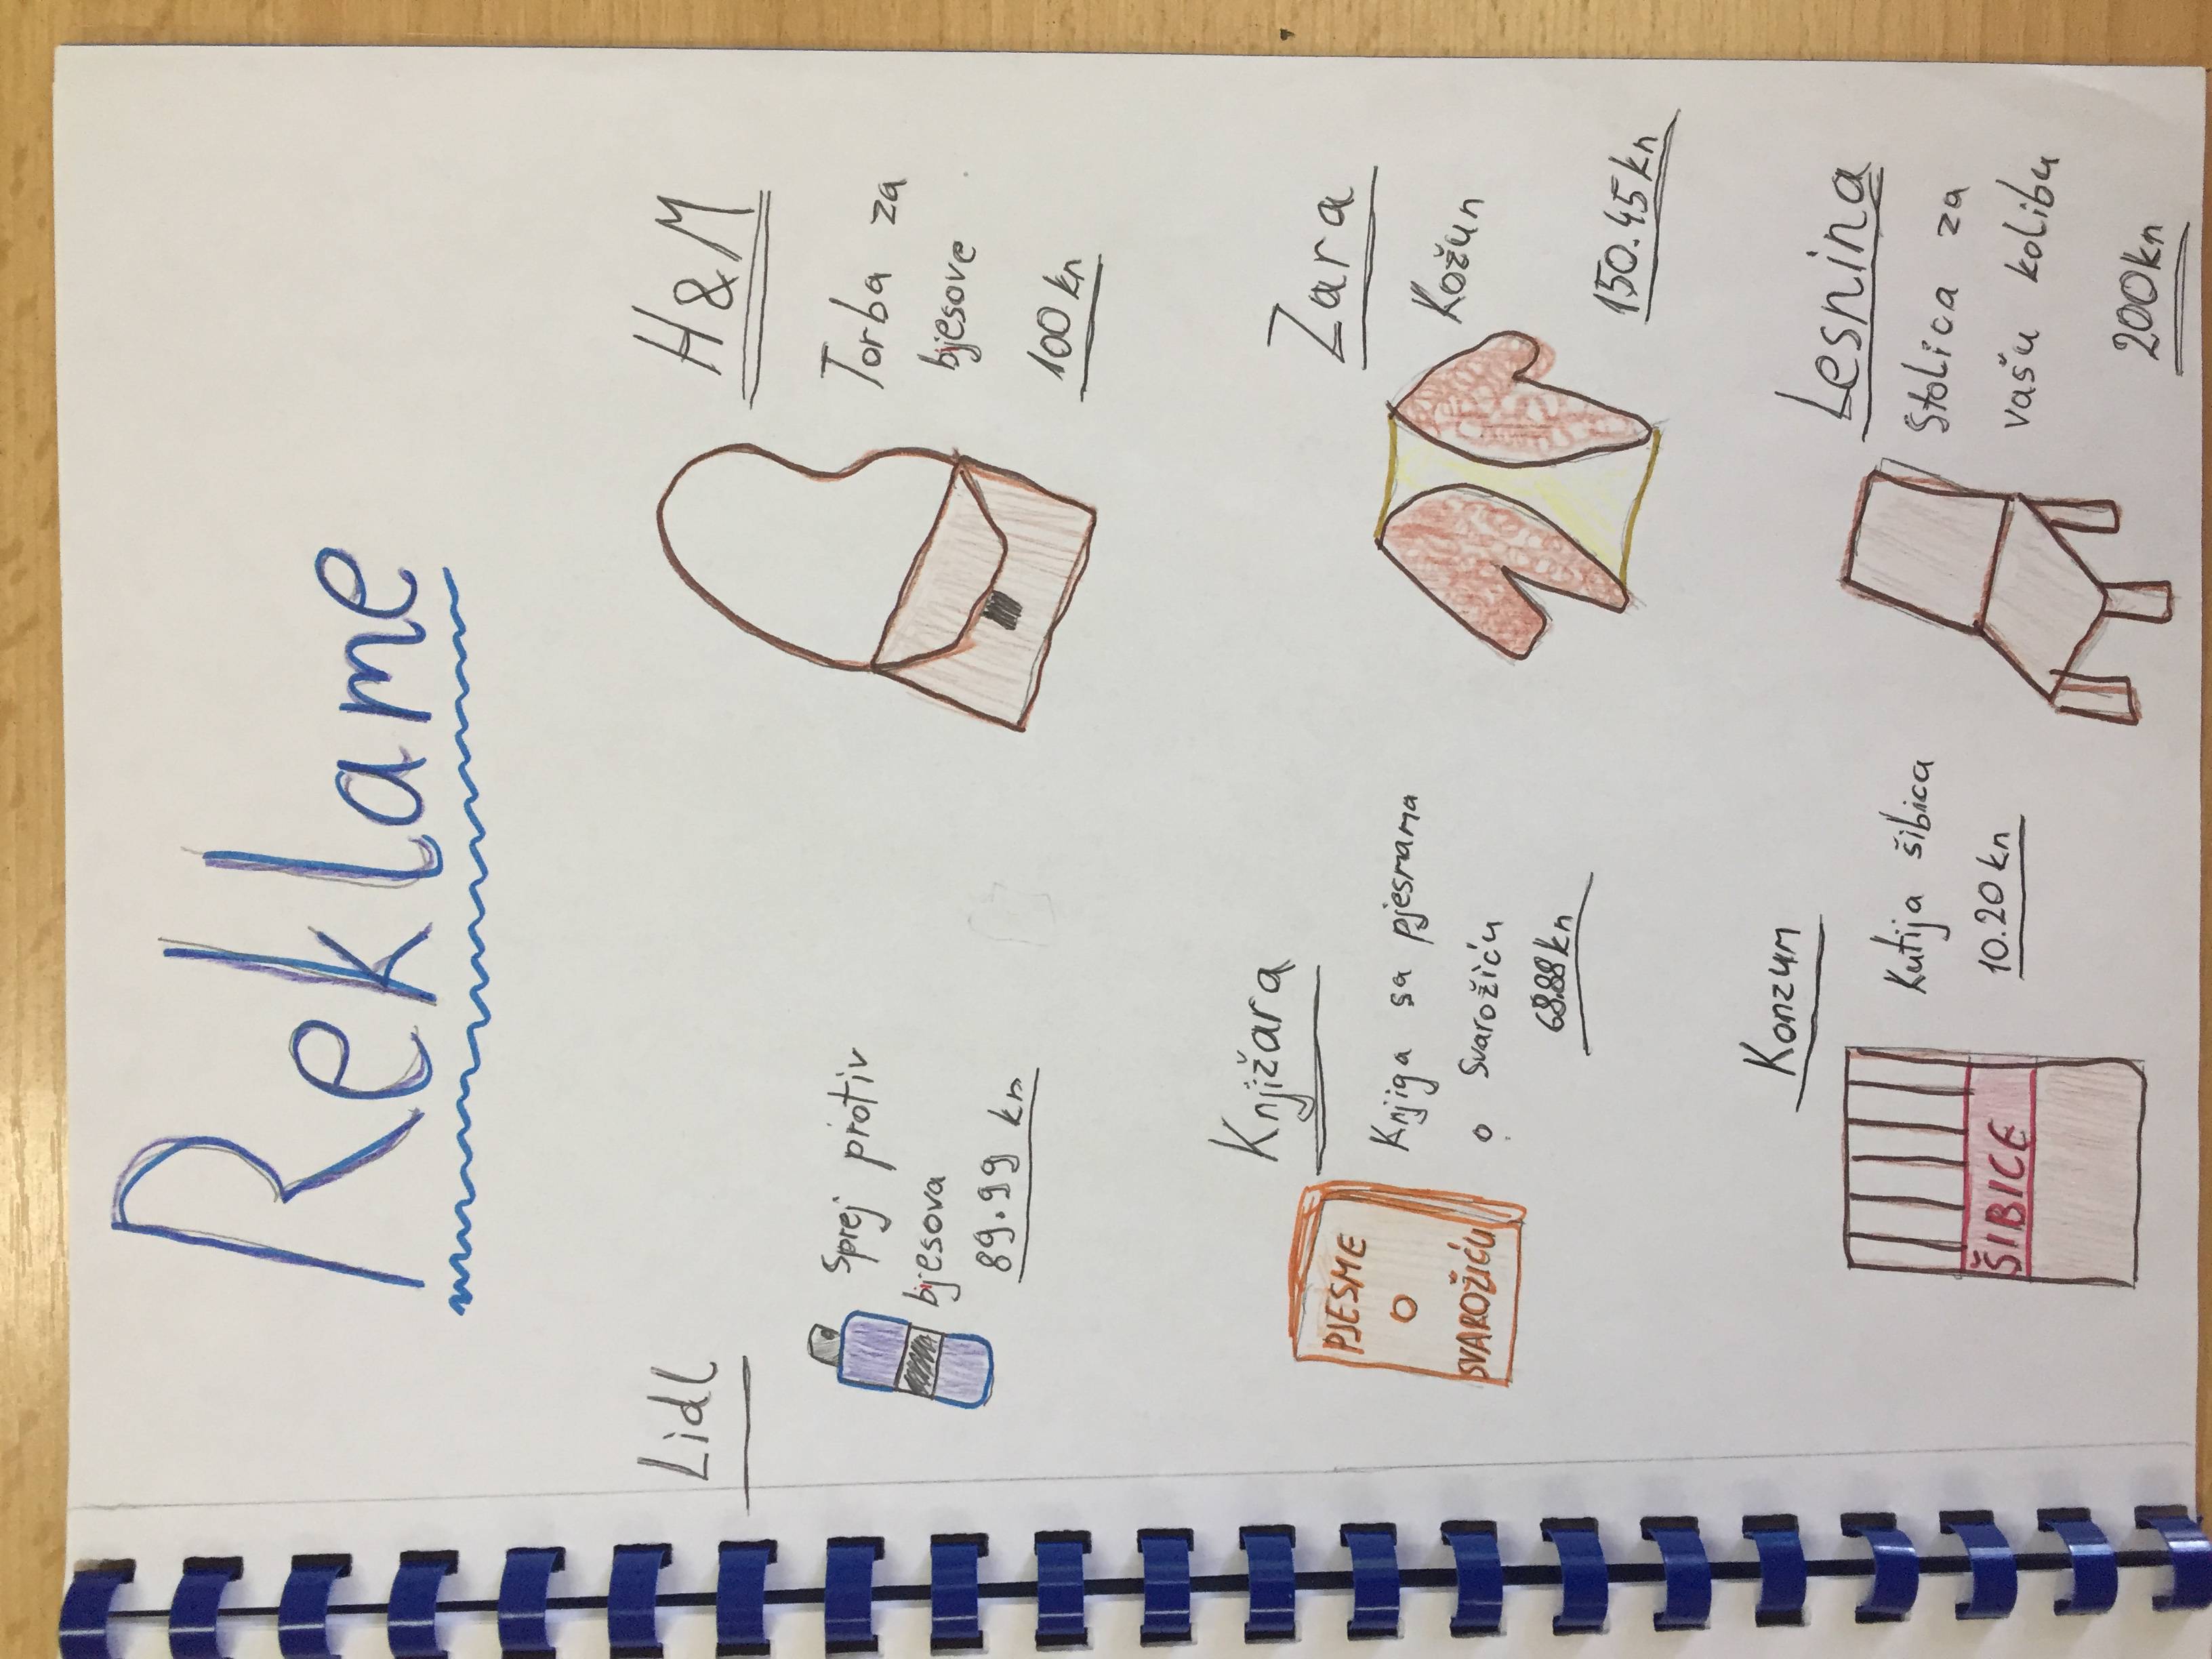 Reklame
Lidl
Sprej protiv
bjesova
89.99 kn
H&M
Torba za
bjesove
100 kn
Knjižara
PJESME
O
SVAROŽIĆU
Knjiga sa pjesmama
o Svarožiću
68.88 kn
Zara
Kožun
150.45 kn
Konzum
ŠIBICE
Kutija šibica
10.20 kn
Lesnina
Stolica za
vašu kolibu
200 kn